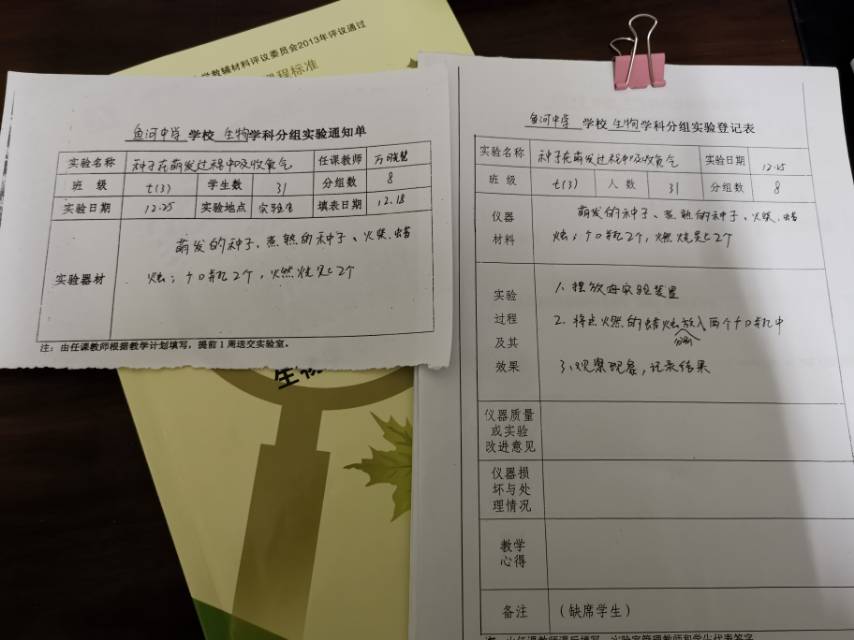 学教辅材料评议委员会2013年评议通过
程标准
鱼河中学 学校 生物 学科分组实验通知单
实验名称 种子在萌发过程中吸收氧气 任课教师
班 级 七(3) 学生数 31 分组数 8
实验日期 12.25 实验地点 实验室 填表日期 12.18
实验器材
萌发的种子、煮熟的种子、火柴、蜡
烛;广口瓶2个,燃烧匙2个
注:由任课教师根据教学计划填写,提前1周送交实验室。
生物
鱼河中学 学校 生物 学科分组实验登记表
实验名称 种子在萌发过程中吸收氧气 实验日期 12.25
班 级 七(3) 人 数 31 分组数 8
仪器
材料
萌发的种子、煮熟的种子、火柴、蜡
烛;广口瓶2个,燃烧匙2个
实验
过程
及其
效果
1、摆放好实验装置
2、将点燃的蜡烛分别放入两个广口瓶中
3、观察现象,记录结果
仪器质量
或实验
改进意见
仪器损
坏与处
理情况
教学
心得
备注 (缺席学生)